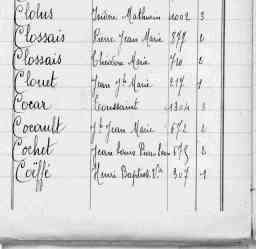 Clolus Isidore Mathurin 1002 3
Clossais Pierre Jean Marie 877 2
Clossais Théodore Marie 710 2
Clouet Jean Jh Marie 217 1
Cocar Toussaint 1304 3
Cocault Jh Jean Marie 672 2
Cochet Jean Louis 573 2
Coëffé Henri Baptiste 307 1